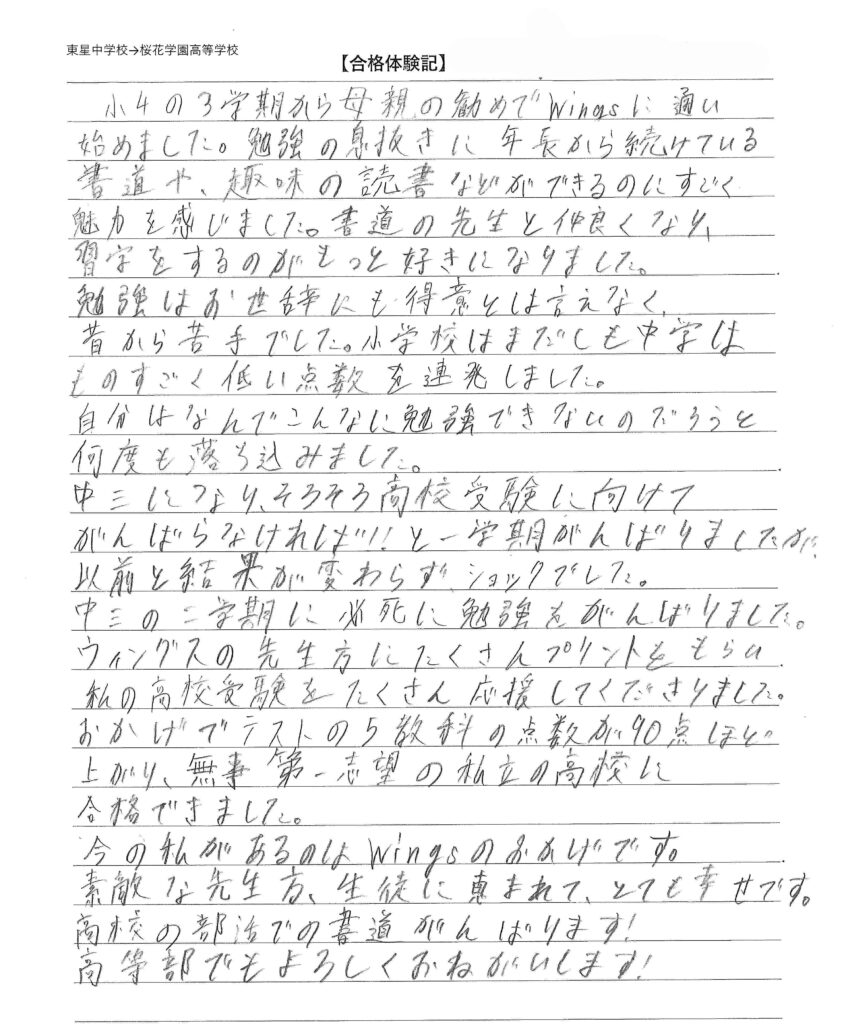 東星中学校→桜花学園高等学校
【合格体験記】
小4の3学期から母親の勧めでWingsに通い
始めました。勉強の息抜きに年長から続けている
書道や、趣味の読書などができるのにすごく
魅力を感じました。書道の先生と仲良くなり、
習字をするのがもっと好きになりました。
勉強はお世辞にも得意とは言えなく、
昔から苦手でした。小学校はまだしも中学は
ものすごく低い点数を連発しました。
自分はなんでこんなに勉強できないのだろうと
何度も落ち込みました。
中三になり、そろそろ高校受験に向けて
がんばらなければ!!と一学期がんばりましたが、
以前と結果が変わらず、ショックでした。
中三の二学期に必死に勉強をがんばりました。
ウィングスの先生方にたくさんプリントをもらい
私の高校受験をたくさん応援してくださりました。
おかげでテストの5教科の点数が90点ほど
上がり、無事第一志望の私立の高校に
合格できました。
今の私があるのはWingsのおかげです。
素敵な先生方、生徒に恵まれて、とても幸せです。
高校の部活での書道がんばります!
高等部でもよろしくおねがいします!